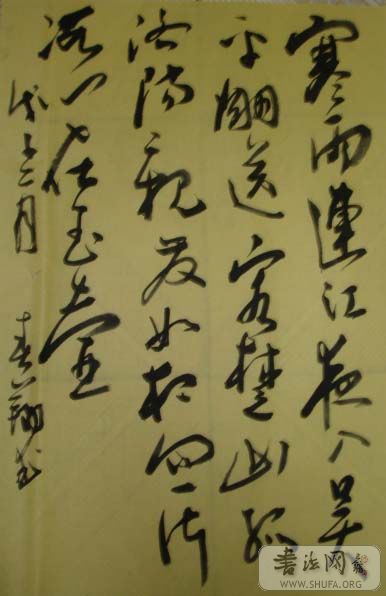 寒雨連江夜入吴
平明送客楚山孤
洛陽親友如相问一片
冰心在玉壺
戊子二月 春翔书
書法网
WWW.SHUFA.ORG